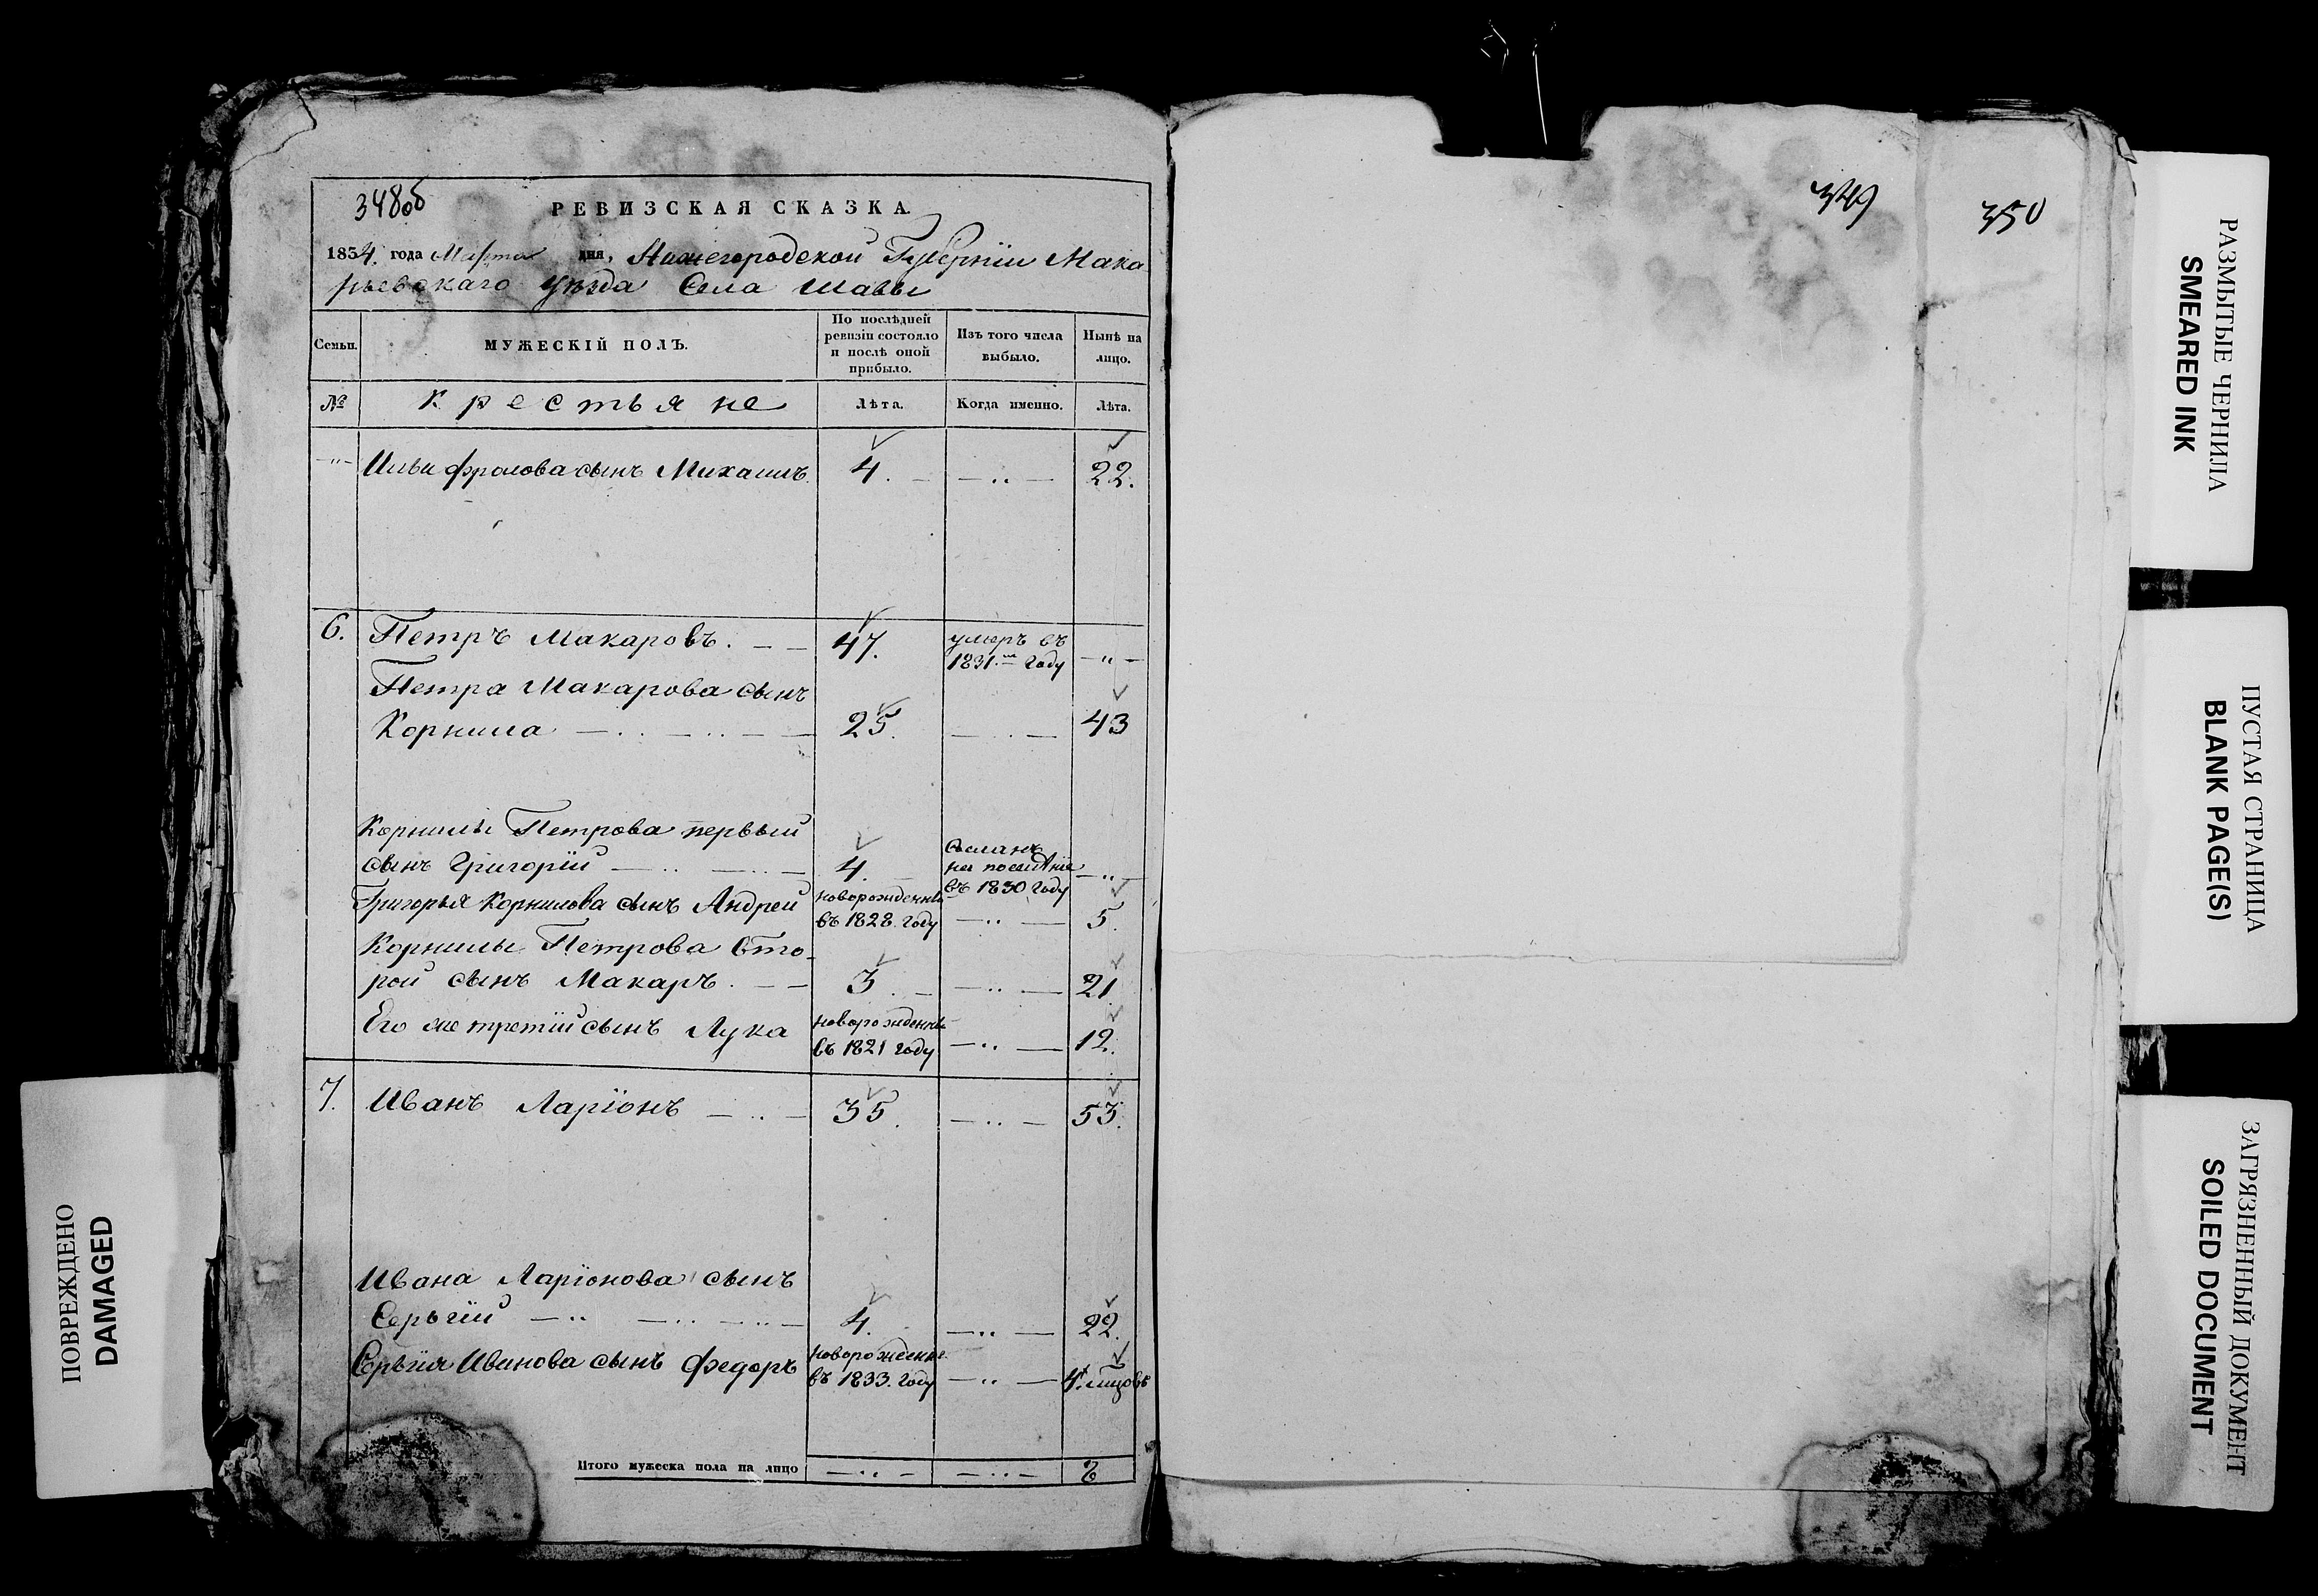 348об
РЕВИЗСКАЯ СКАЗКА.
1834. года Марта дня, Нижегородской Губернїи Мака
рьевскаго уѣзда Села Шавы
Семьи.
МУЖЕСКІЙ ПОЛЪ.
По послѣдней
ревизіи состояло
и послѣ оной
прибыло.
Изъ того числа
выбыло.
Нынѣ на
лицо.
№ Крестьяне Лѣта. Когда именно. Лѣта.
Ильи Фролова сынъ Михаилъ. 4. 22.
6. Петръ Макаровъ. 47. умеръ въ
1831.м году
Петра Макарова сынъ
Корнила 25. 43
Корнилы Петрова первый
сынъ Григорїй 4. Сосланъ
на поселѣнїе
въ 1830 году
Григорья Корнилова сынъ Андрей новорожденный
въ 1828. году 5.
Корнилы Петрова Вто-
рой сынъ Макаръ. 3. 21.
Его же третїй сынъ Лука новорожденный
въ 1821 году 12.
7. Иванъ Ларїонъ 35. 53.
Ивана Ларїонова сынъ
Серьгїй 4. 22.
Серьгїя Иванова сынъ Федоръ новорожден.
въ 1833. году
Итого мужеска пола на лицо
349
350
РАЗМЫТЫЕ ЧЕРНИЛА
SMEARED INK
ПУСТАЯ СТРАНИЦА
BLANK PAGE(S)
ЗАГРЯЗНЕННЫЙ ДОКУМЕНТ
SOILED DOCUMENT
ПОВРЕЖДЕНО
DAMAGED